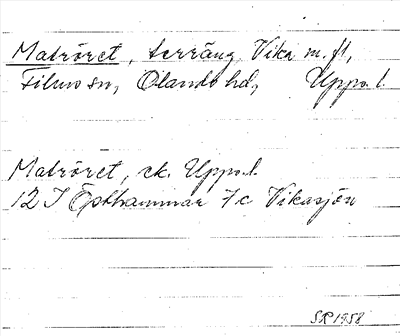 Matröret, terräng Vika m. fl,
Films sn, Olands hd, Upps. l.
Matröret, ek. Uppl.
12 I Östhammar 7c Vikasjön
SR 1958